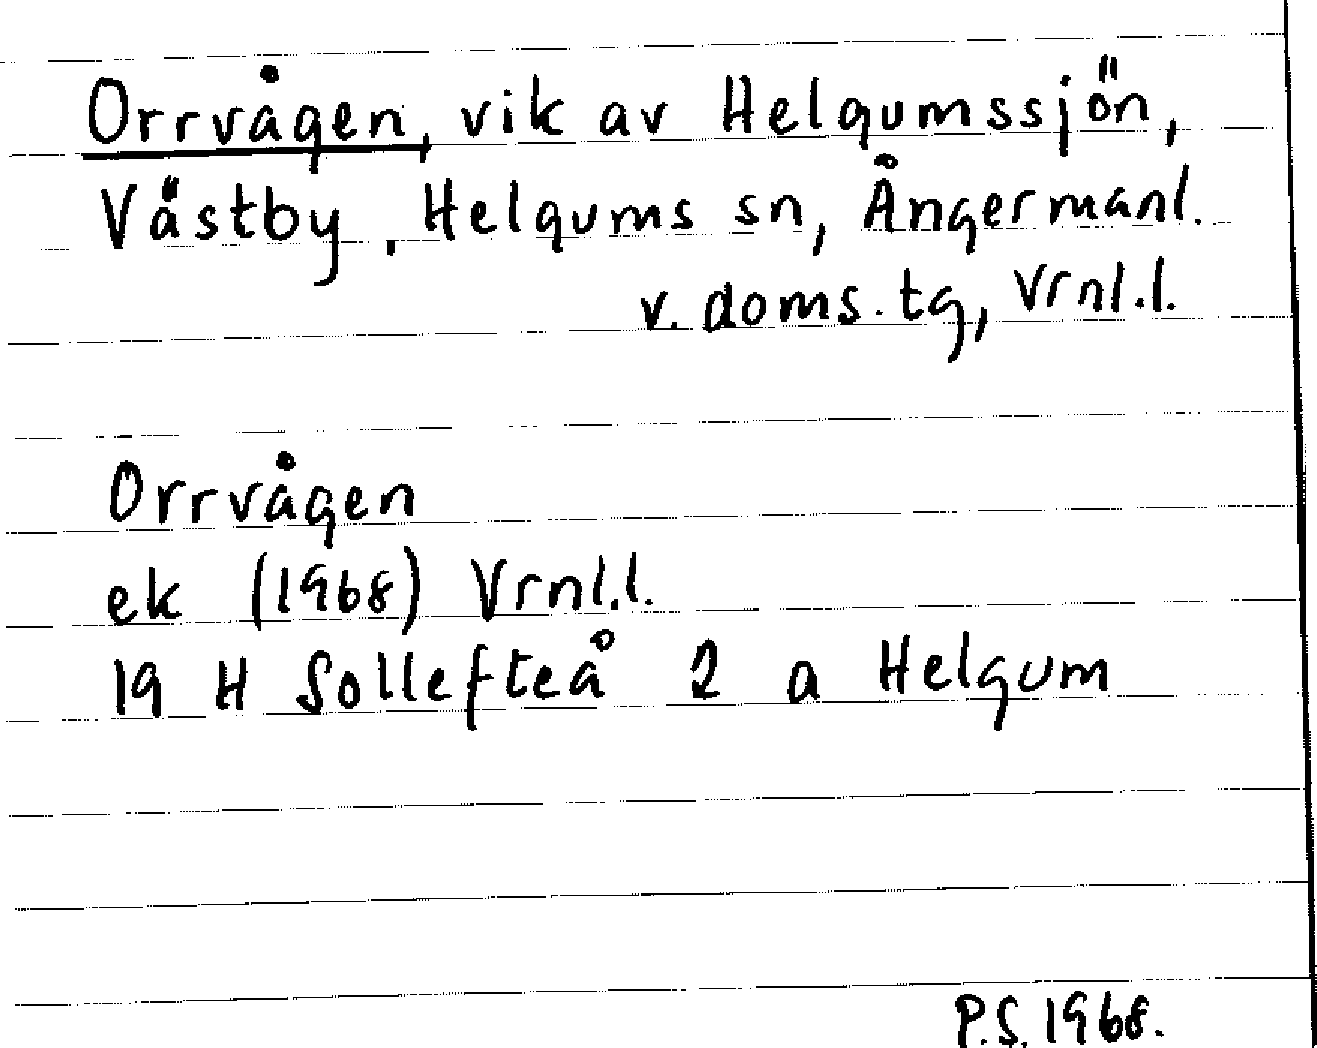 Orrvågen, vik av Helgumssjön,
Västby, Helgums sn, Ångermanl.
v. doms. tg, Vrnl.l.
Orrvågen
ek (1968) Vrnl.l.
19 H Sollefteå 2 a Helgum
P.S. 1968.